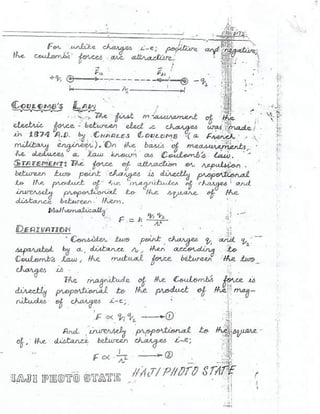 For unlike charges i-e; positive and negative,
the coulombs forces are attractive.
+q₁ F₁₂ F₂₁ -q₂
r
COULOMB'S LAW
The first measurement of the
electric force between elect ic charges was made
in 1874 A.D. by CHARLES COULOMB (a French
military engineer). On the basis of measurements,
he deduces a law known as Coulomb's law.
STATEMENT: The force of attraction or repulsion
between two point charges is directly proportional
to the product of the magnitudes of charges and
inversely proportional to the square of the
distance between them.
Mathematically
F = k q₁q₂/r²
DERIVATION
Consider two point charges q₁ and q₂
separated by a distance r, then according to
Coulomb's law, the mutual force between the two
charges is :
The magnitude of the Coulomb's force is
directly proportional to the product of the mag-
nitudes of charges i-e;
F ∝ q₁q₂ → ①
And inversely proportional to the square
of, the distance between charges i-e;
F ∝ 1/r² → ②
HAJI PHOTO STATE HAJI PHOTO STATE